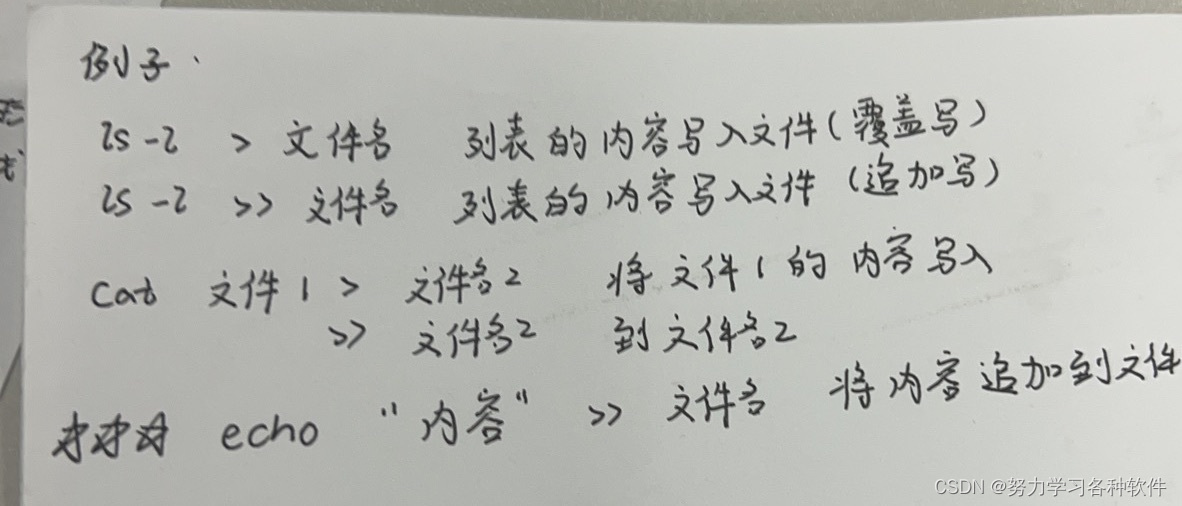 例子.
ls -l > 文件名 列表的内容写入文件(覆盖写)
ls -l >> 文件名 列表的内容写入文件(追加写)
cat 文件1 > 文件名2 将文件1的内容写入
>> 文件名2 到文件名2
☆☆☆ echo "内容" >> 文件名 将内容追加到文件
CSDN @努力学习各种软件